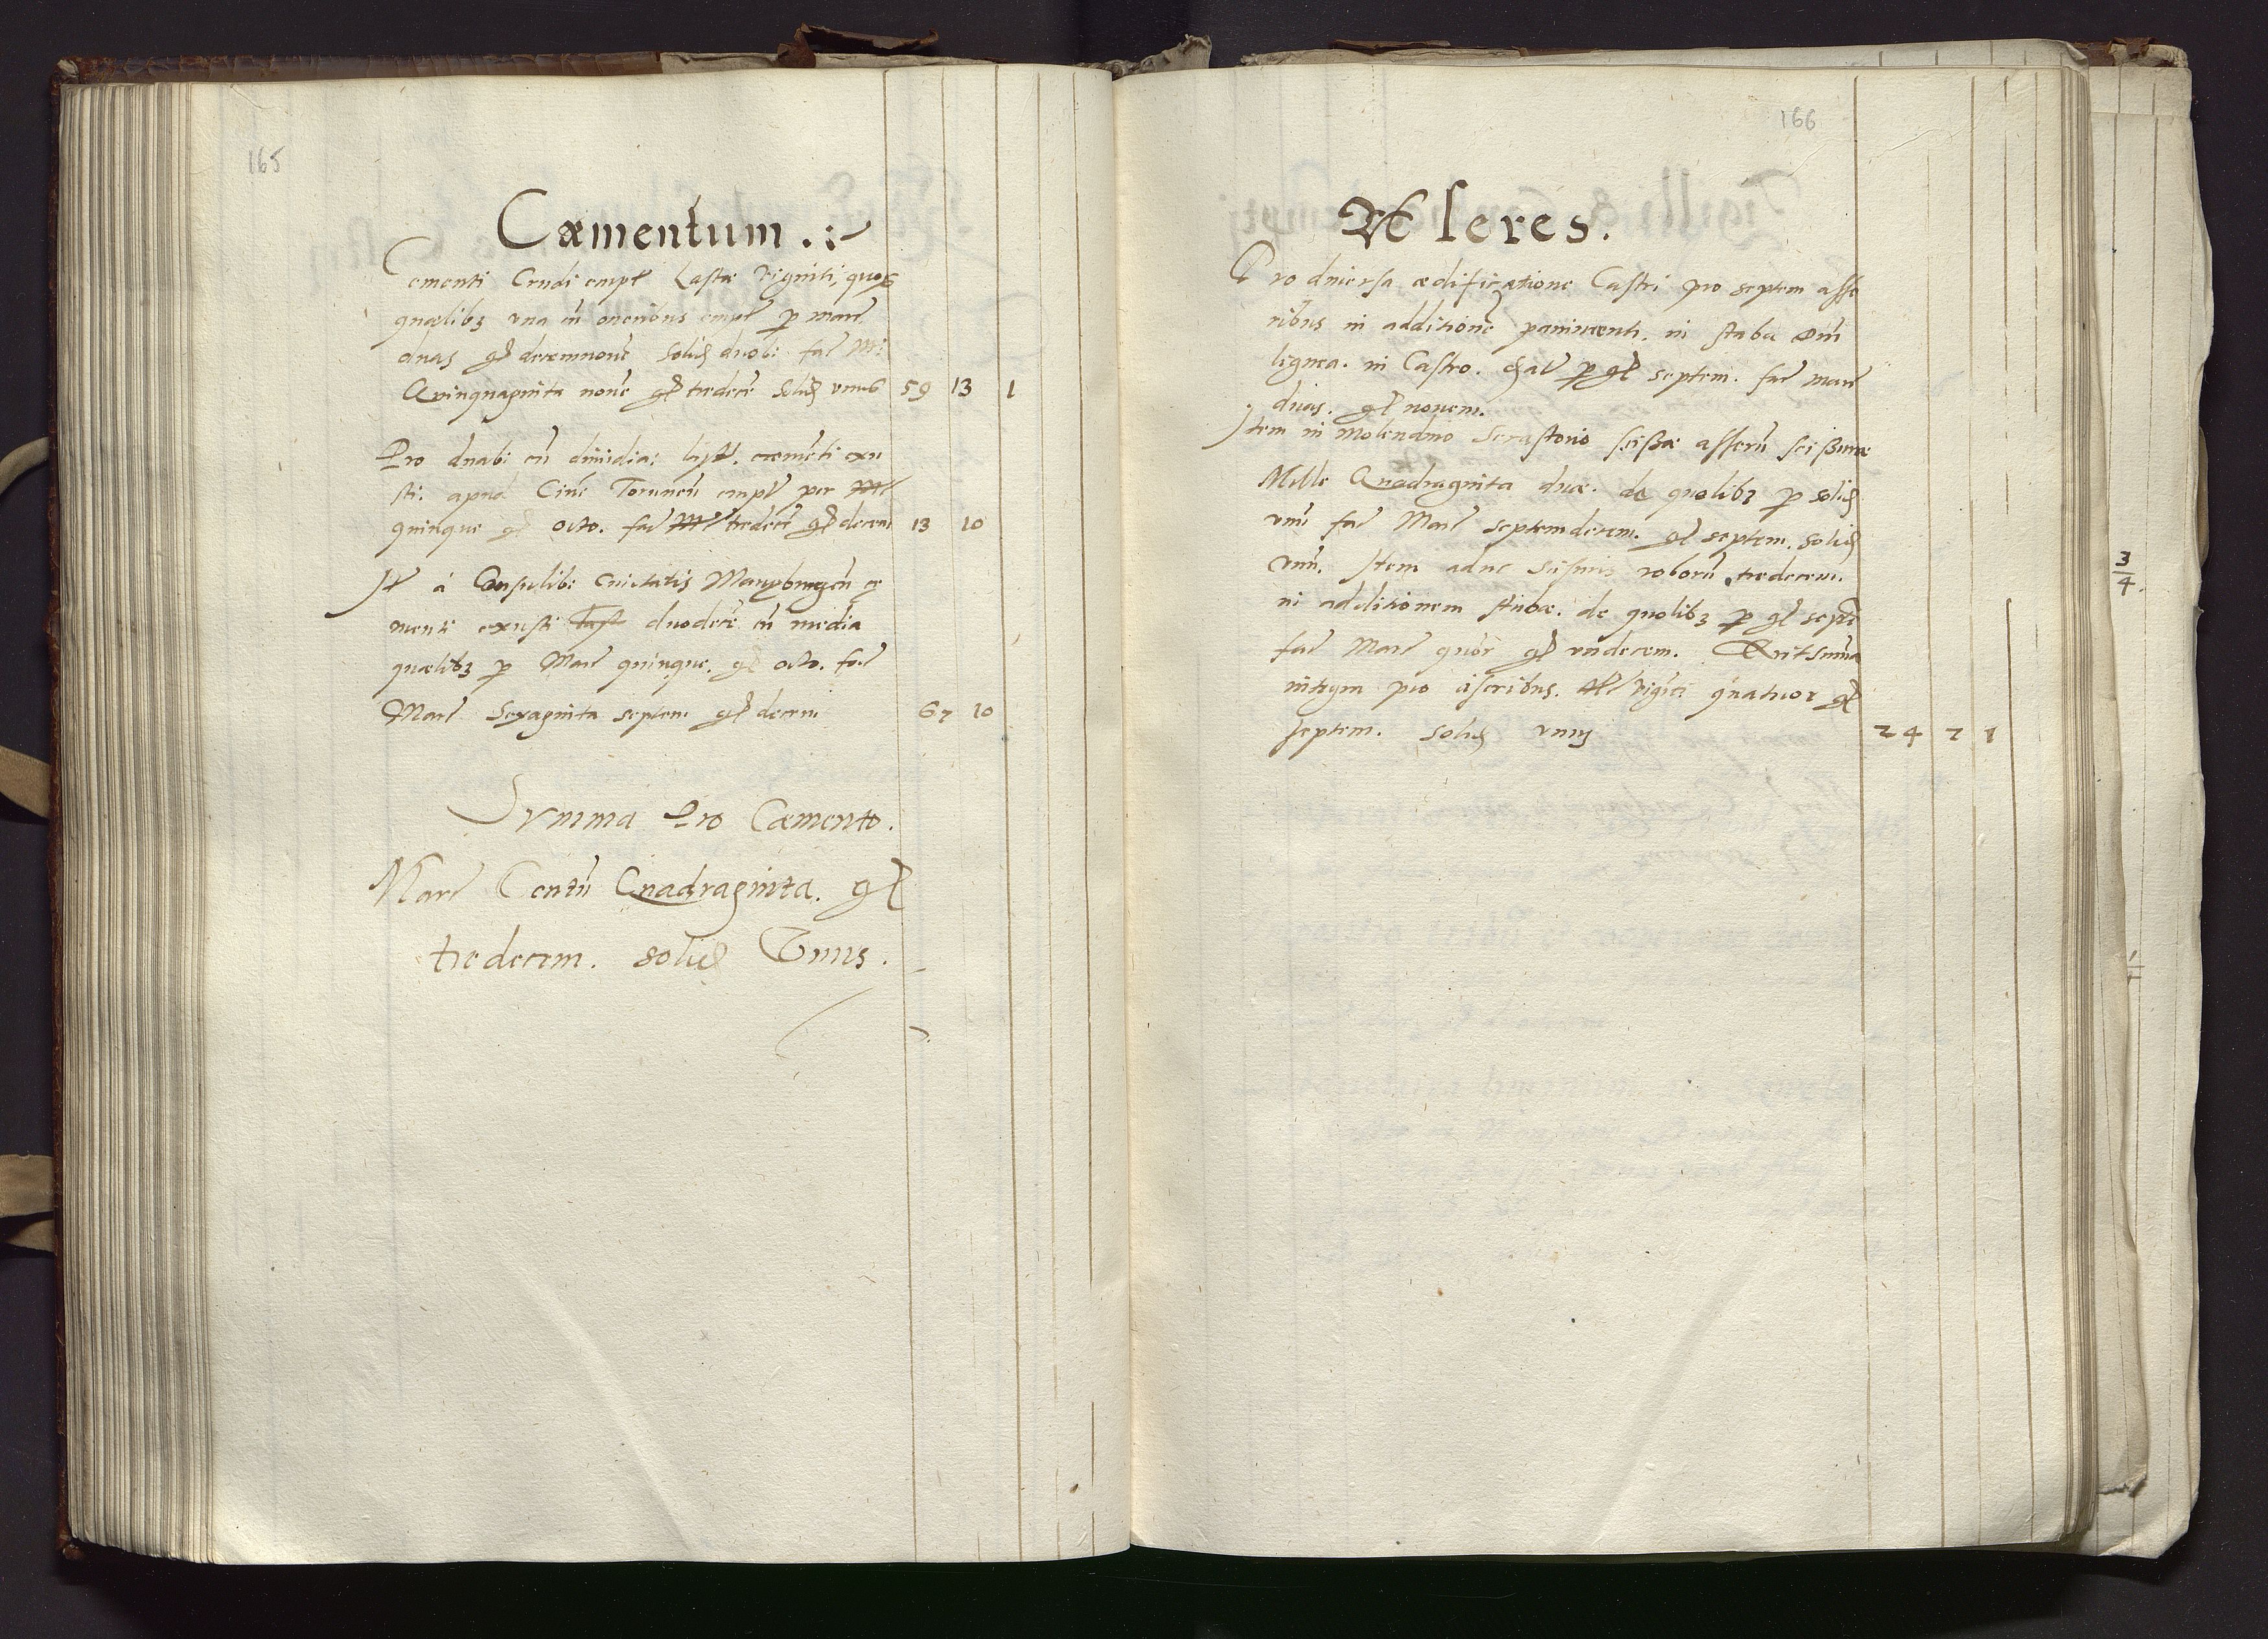 165
Cæmentum.
Cementi Crudi empt Lastæ viginti, quoꝝ
quælibꝫ vna cũ oneribus empt ꝑ marc
duas gꝭ decemnoue Solid duob: fac M:
Qvinquaginta noue gꝭ tredece Solid vnus 59 13 1
Pro duab: cũ dimidia: last. cæmẽti exu
sti. apud Ciue Torunen empt per M
quinque gꝭ octo. fac M tredece gꝭ decem 13 10
It à Consulib: Ciuitatis Maryburgen ce
menti exusti Last duodece cũ media
quælibꝫ ꝑ Marc quinque. gꝭ octo. fac
Marc Sexaginta septem gꝭ decem 67 10
Svmma Pro Cæmento.
Marc Centũ Quadraginta. gꝭ
tredecem. solid Vnus.
166
Asseres.
Pro diuersa ædificatione Castri pro septem asse
ribus in additionẽ pauimenti. in stuba
lignea. in Castro. ꝑ gꝭ septem. fac marc
duas. gꝭ nouem.
Item in Molendino Serrastorio scissæ asserũ scissuræ
Mille Quadraginta duæ. de quolibꝫ ꝑ solid
vnũ fac Marc septemdecem. gꝭ septem. solid
vnũ. Item adhuc roborũ tredecem.
in additionem stubæ. de quolibꝫ ꝑ gꝭ septẽ
fac Marc quor gꝭ vndecem. Erit summa
integra pro asseribus. M viginti quatuor gꝭ
septem. solid vnus 24 7 1
3/4